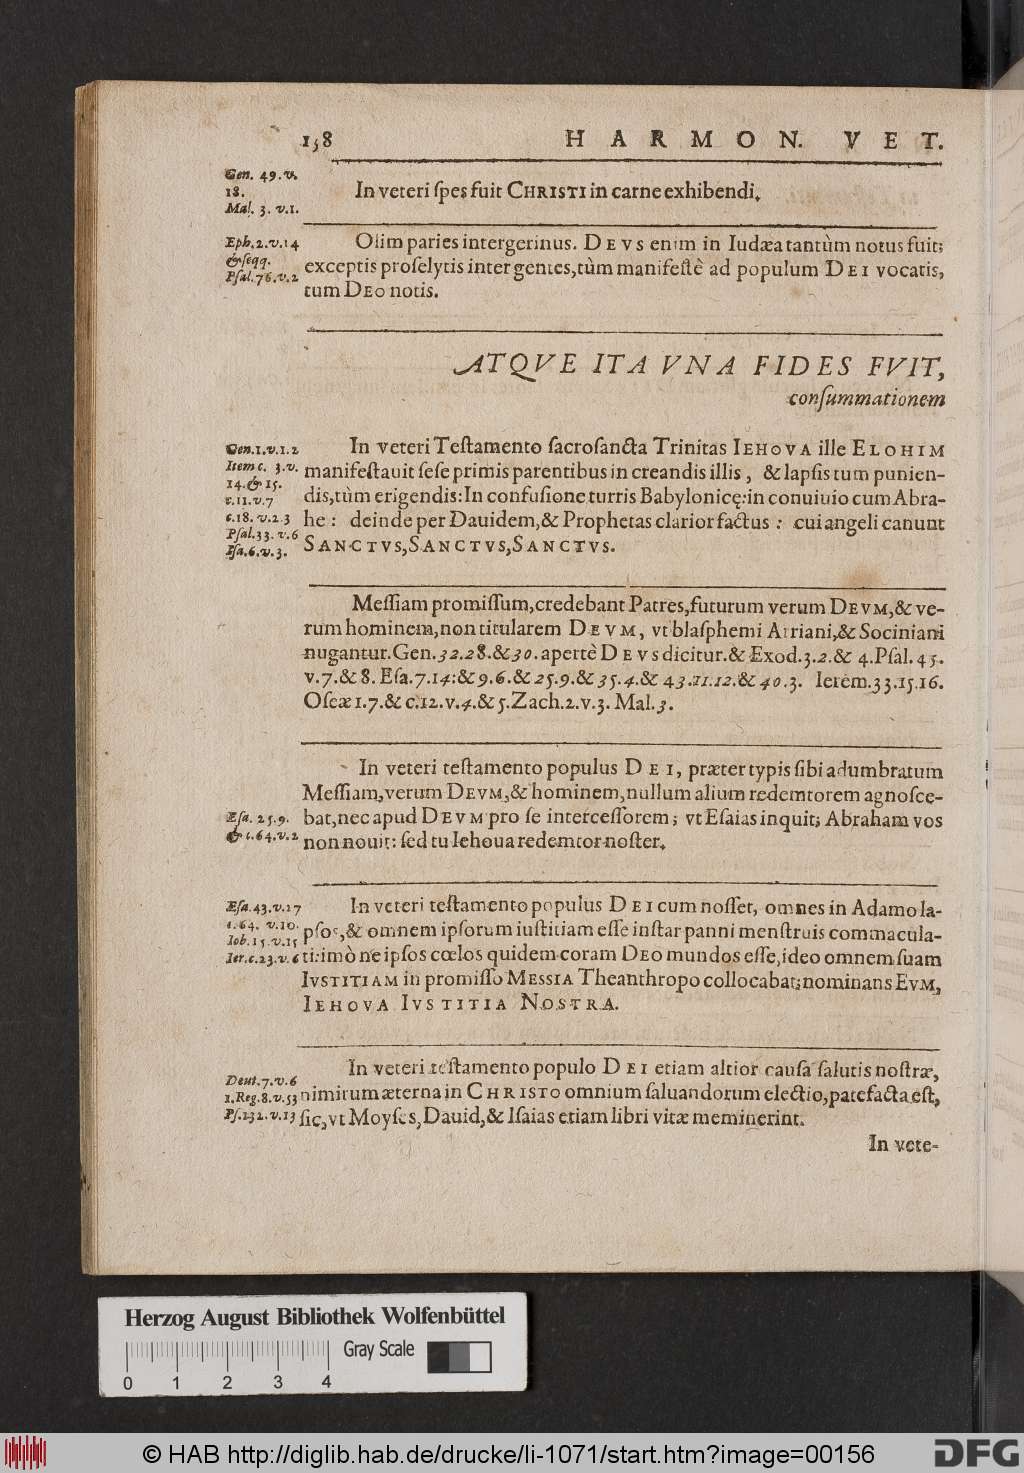 138 HARMON. VET.
Gen. 49. v.
18.
Mal. 3. v. 1.
In veteri ſpes fuit CHRISTI in carne exhibendi.
Eph. 2. v. 14
& ſeqq.
Pſal. 76. v. 2
Olim paries intergerinus. DEVS enim in Iudæa tantùm notus fuit;
exceptis proſelytis inter gentes, tùm manifeſtè ad populum DEI vocatis,
tum DEO notis.
ATQVE ITA VNA FIDES FVIT,
conſummationem
Gen. 1. v. 1. 2
Item c. 3. v.
14. & 15.
c. 11. v. 7
c. 18. v. 2. 3
Pſal. 33. v. 6
Eſa. 6. v. 3.
In veteri Teſtamento ſacroſancta Trinitas IEHOVA ille ELOHIM
manifeſtavit ſeſe primis parentibus in creandis illis, & lapſis tum punien-
dis, tùm erigendis: In confuſione turris Babylonicę: in conuiuio cum Abra-
he: deinde per Dauidem, & Prophetas clarior factus: cui angeli canunt
SANCTVS, SANCTVS, SANCTVS.
Meſſiam promiſſum, credebant Patres, futurum verum DEVM, & ve-
rum hominem, non titularem DEVM, vt blaſphemi Arriani, & Sociniani
nugantur. Gen. 32. 28. & 30. apertè DEVS dicitur. & Exod. 3. 2. & 4. Pſal. 45.
v. 7. & 8. Eſa. 7. 14: & 9. 6. & 25. 9. & 35. 4. & 43. 11. 12. & 40. 3. Ierem. 33. 15. 16.
Oſeæ 1. 7. & c. 12. v. 4. & 5. Zach. 2. v. 3. Mal. 3.
In veteri teſtamento populus DEI, præter typis ſibi adumbratum
Meſſiam, verum DEVM, & hominem, nullum alium redemtorem agnoſce-
Eſa. 25. 9.
& c. 64. v. 2
bat, nec apud DEVM pro ſe interceſſorem; vt Eſaias inquit; Abraham vos
non nouit: ſed tu Iehoua redemtor noſter.
Eſa. 43. v. 27
c. 64. v. 10.
Iob. 15. v. 15
Ier. c. 23. v. 6
In veteri teſtamento populus DEI cum noſſet, omnes in Adamo la-
pſos, & omnem ipſorum iuſtitiam eſſe inſtar panni menſtruis commacula-
ti: imò ne ipſos cœlos quidem coram DEO mundos eſſe, ideo omnem ſuam
IVSTITIAM in promiſſo MESSIA Theanthropo collocabat; nominans EVM,
IEHOVA IVSTITIA NOSTRA.
Deut. 7. v. 6
1. Reg. 8. v. 53
Pſ. 132. v. 13
In veteri teſtamento populo DEI etiam altior cauſa ſalutis noſtræ,
nimirum æterna in CHRISTO omnium ſaluandorum electio, patefacta eſt,
ſic, vt Moyſes, Dauid, & Iſaias etiam libri vitæ meminerint.
In vete-
Herzog August Bibliothek Wolfenbüttel
Gray Scale
0 1 2 3 4
© HAB http://diglib.hab.de/drucke/li-1071/start.htm?image=00156
DFG